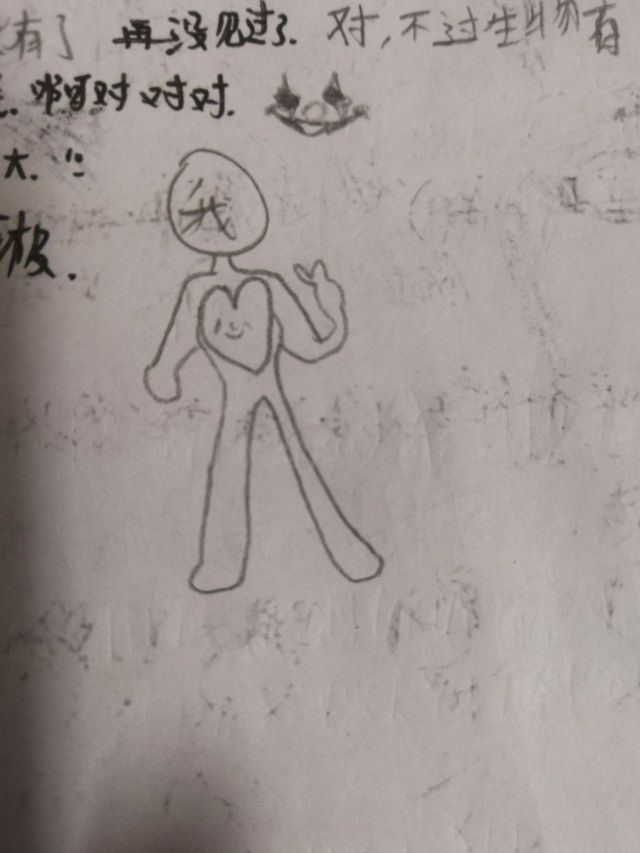 有了 再没见过了. 对,不过生物有
啊对对对.
大.
我
极.